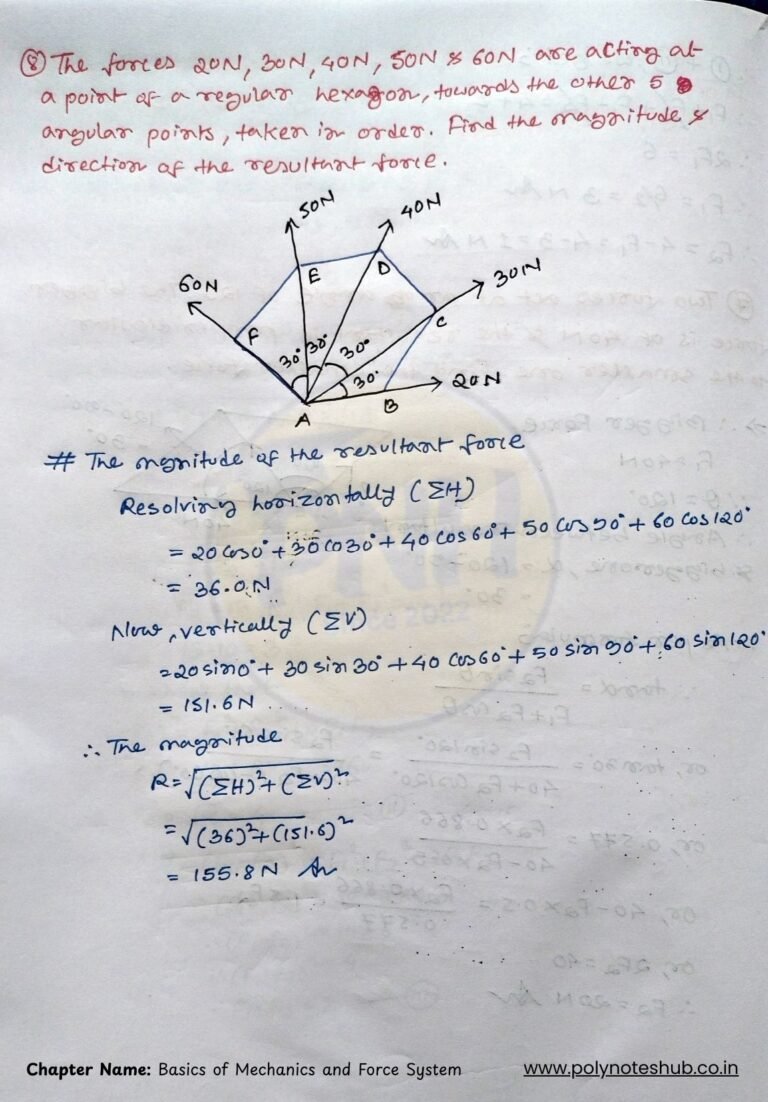 ⑧ The forces 20N, 30N, 40N, 50N & 60N are acting at
a point of a regular hexagon, towards the other 5
angular points, taken in order. Find the magnitude &
direction of the resultant force.
50N
40N
60N
30N
E
D
F
C
30° 30° 30°
30°
20N
B
A
# The mgnitude of the resultant force
Resolving horizontally (ΣH)
= 20 cos0° + 30 cos30° + 40 cos60° + 50 cos90° + 60 cos120°
= 36.0 N
Now, vertically (ΣV)
= 20 sin0° + 30 sin30° + 40 cos60° + 50 sin90° + 60 sin120°
= 151.6 N
∴ The magnitude
R = √(ΣH)² + (ΣV)²
= √(36)² + (151.6)²
= 155.8 N
PNH
2022
Chapter Name: Basics of Mechanics and Force System
www.polynoteshub.co.in